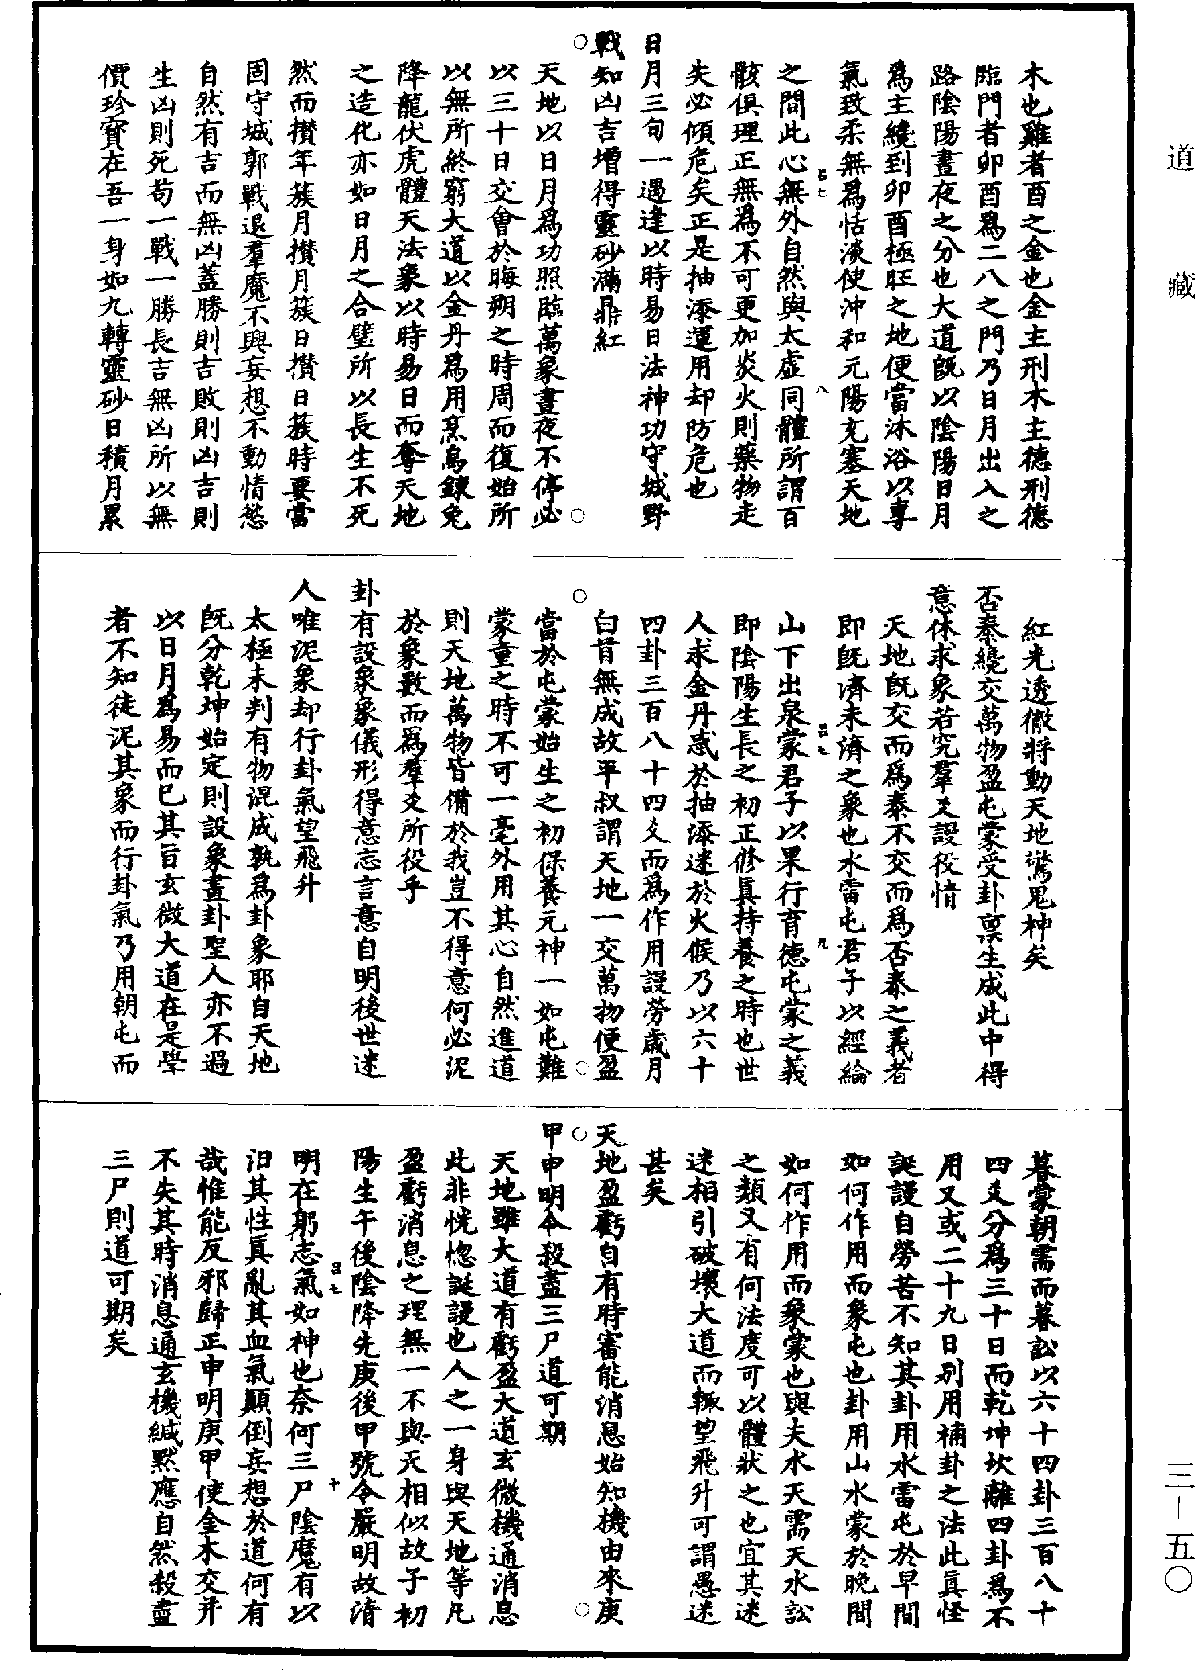 道藏
木也雞者酉之金也金主刑木主德刑德
臨門者卯酉爲二八之門乃日月出入之
路陰陽晝夜之分也大道旣以陰陽日月
爲主纔到卯酉極旺之地便當沐浴以專
氣致柔無爲恬淡使沖和元陽充塞天地
之間此心無外自然與太虛同體所謂百
骸俱理正無爲不可更加炎火則藥物走
失必傾危矣正是抽添運用却防危也
日月三旬一遇逢以時易日法神功守城野
戰知凶吉增得靈砂滿鼎紅
天地以日月爲功照臨萬象晝夜不停必
以三十日交會於晦朔之時周而復始所
以無所終窮大道以金丹爲用烹烏鍊兔
降龍伏虎體天法象以時易日而奪天地
之造化亦如日月之合璧所以長生不死
然而攢年簇月攢月簇日攢日簇時要當
固守城郭戰退羣魔不興妄想不動情慾
自然有吉而無凶蓋勝則吉敗則凶吉則
生凶則死苟一戰一勝長吉無凶所以無
價珍寶在吾一身如九轉靈砂日積月累
紅光透徹將動天地驚鬼神矣
否泰纔交萬物盈屯蒙受卦禀生成此中得
意休求象若究羣爻設役情
天地旣交而爲泰不交而爲否泰之義者
即旣濟未濟之象也水雷屯君子以經綸
山下出泉蒙君子以果行育德屯蒙之義
即陰陽生長之初正修眞持養之時也世
人求金丹惑於抽添迷於火候乃以六十
四卦三百八十四爻而爲作用謾勞歲月
白首無成故平叔謂天地一交萬物便盈
當於屯蒙始生之初保養元神一如屯難
蒙童之時不可一毫外用其心自然進道
則天地萬物皆備於我豈不得意何必泥
於象數而爲羣爻所役乎
卦有設象象儀形得意忘言意自明後世迷
人唯泥象却行卦氣望飛升
太極未判有物混成孰爲卦象耶自天地
旣分乾坤始定則設象畫卦聖人亦不過
以日月爲易而已其旨玄微大道在是學
者不知徒泥其象而行卦氣乃用朝屯而
暮蒙朝需而暮訟以六十四卦三百八十
四爻分爲三十日而乾坤坎離四卦爲不
用又或二十九日別用補卦之法此眞怪
誕謾自勞苦不知其卦用水雷屯於早間
如何作用而象屯也卦用山水蒙於晚間
如何作用而象蒙也與夫水天需天水訟
之類又有何法度可以體狀之也宜其迷
迷相引破壞大道而輒望飛升可謂愚迷
甚矣
天地盈虧自有時審能消息始知機由來庚
甲申明令殺盡三尸道可期
天地雖大道有虧盈大道玄微機通消息
此非恍惚誕謾也人之一身與天地等凡
盈虧消息之理無一不與天相似故子初
陽生午後陰降先庚後甲號令嚴明故清
明在躬志氣如神也奈何三尸陰魔有以
汩其性眞亂其血氣顛倒妄想於道何有
哉惟能反邪歸正申明庚甲使金木交并
不失其時消息通玄機緘默應自然殺盡
三尸則道可期矣
三—五〇